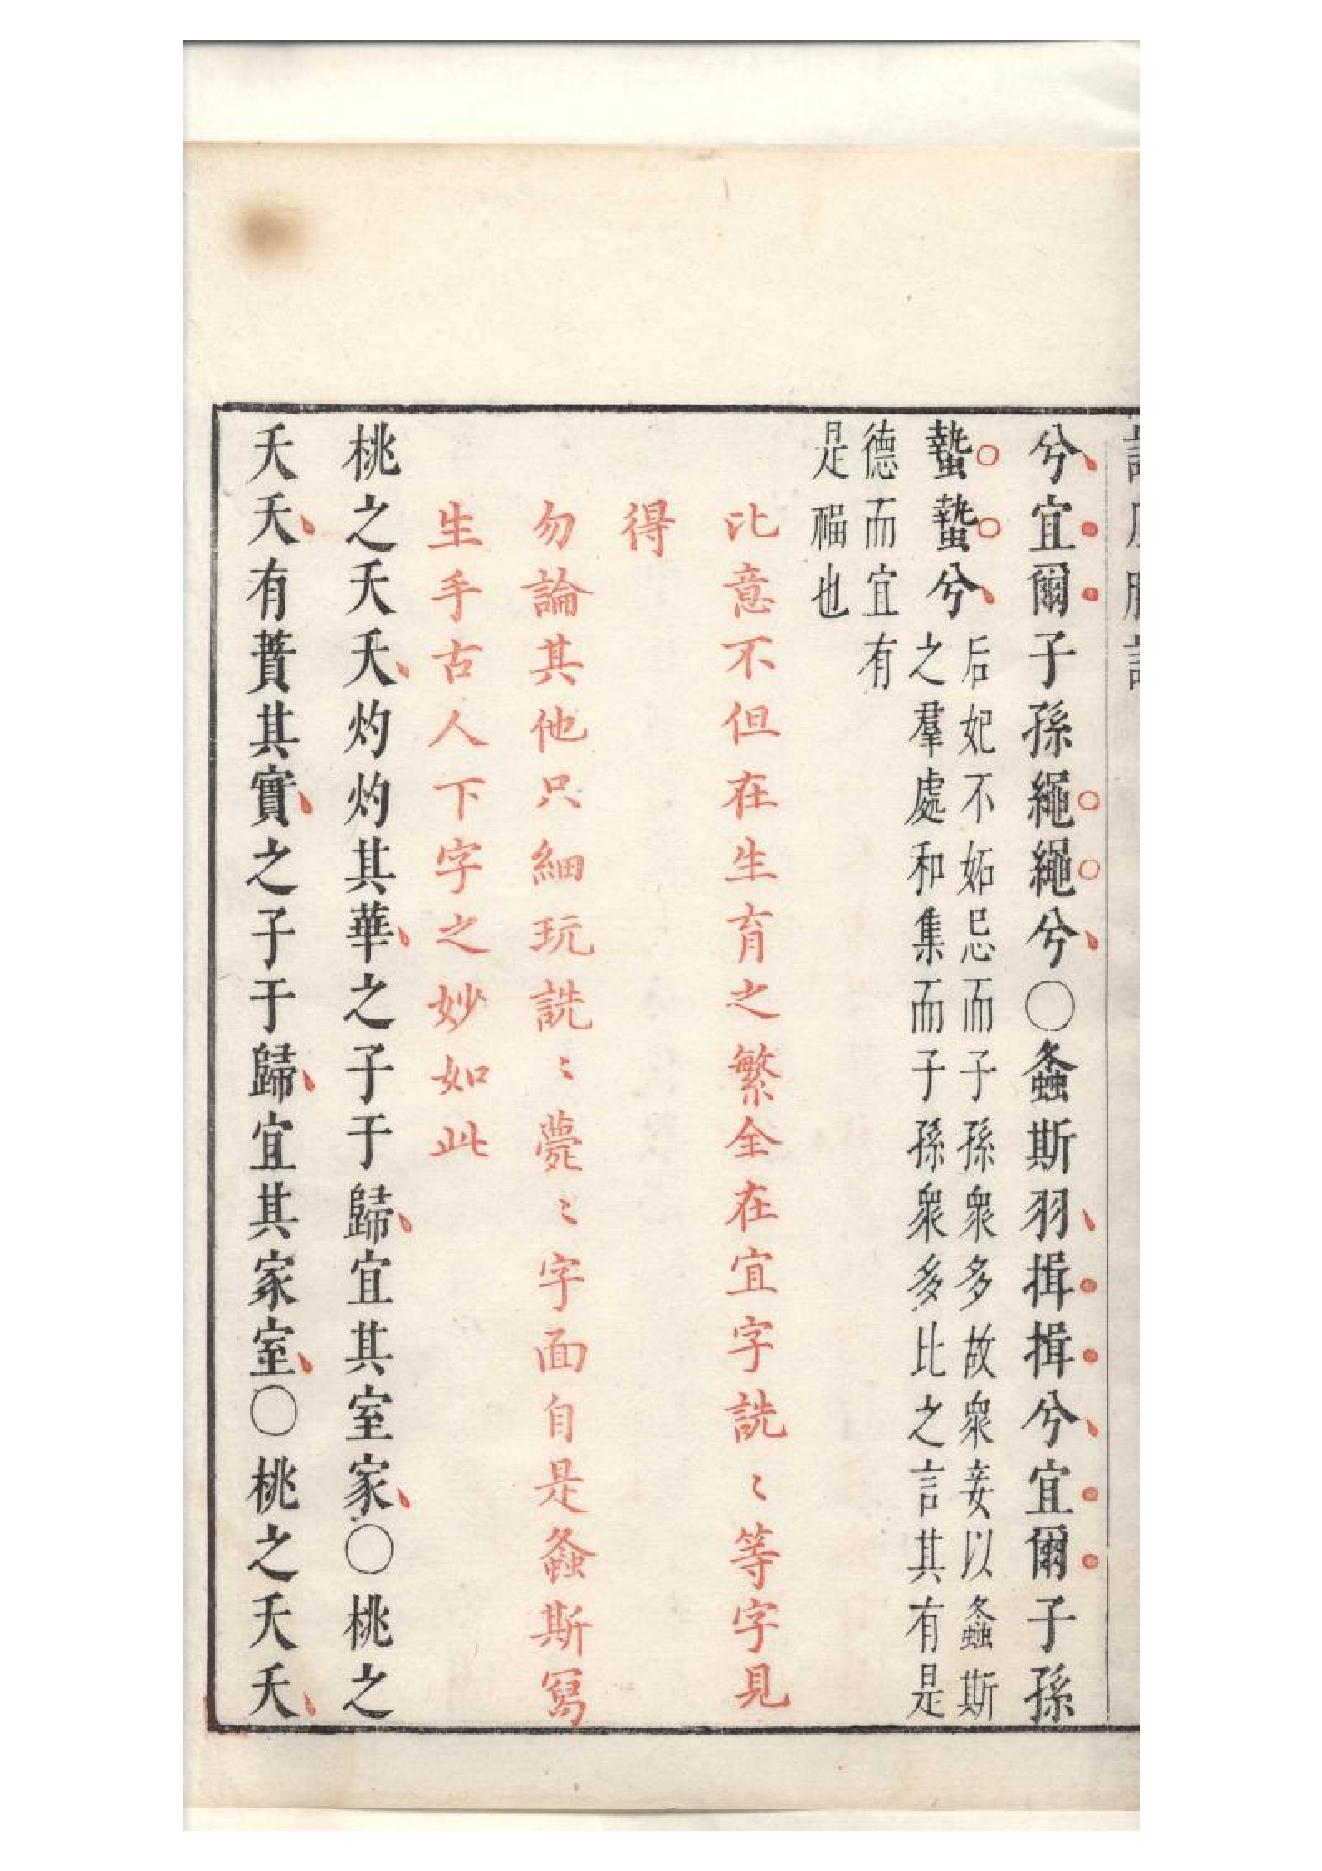 兮宜爾子孫繩繩兮○螽斯羽揖揖兮宜爾子孫
蟄蟄兮
后妃不妬忌而子孫衆多故衆妾以螽斯
之羣處和集而子孫衆多比之言其有是
德而宜有
是福也
比意不但在生育之繁全在宜字詵〻等字見
得
勿論其他只細玩詵〻薨〻字面自是螽斯寫
生手古人下字之妙如此
桃之夭夭灼灼其華之子于歸宜其室家○桃之
夭夭有蕡其實之子于歸宜其家室○桃之夭夭